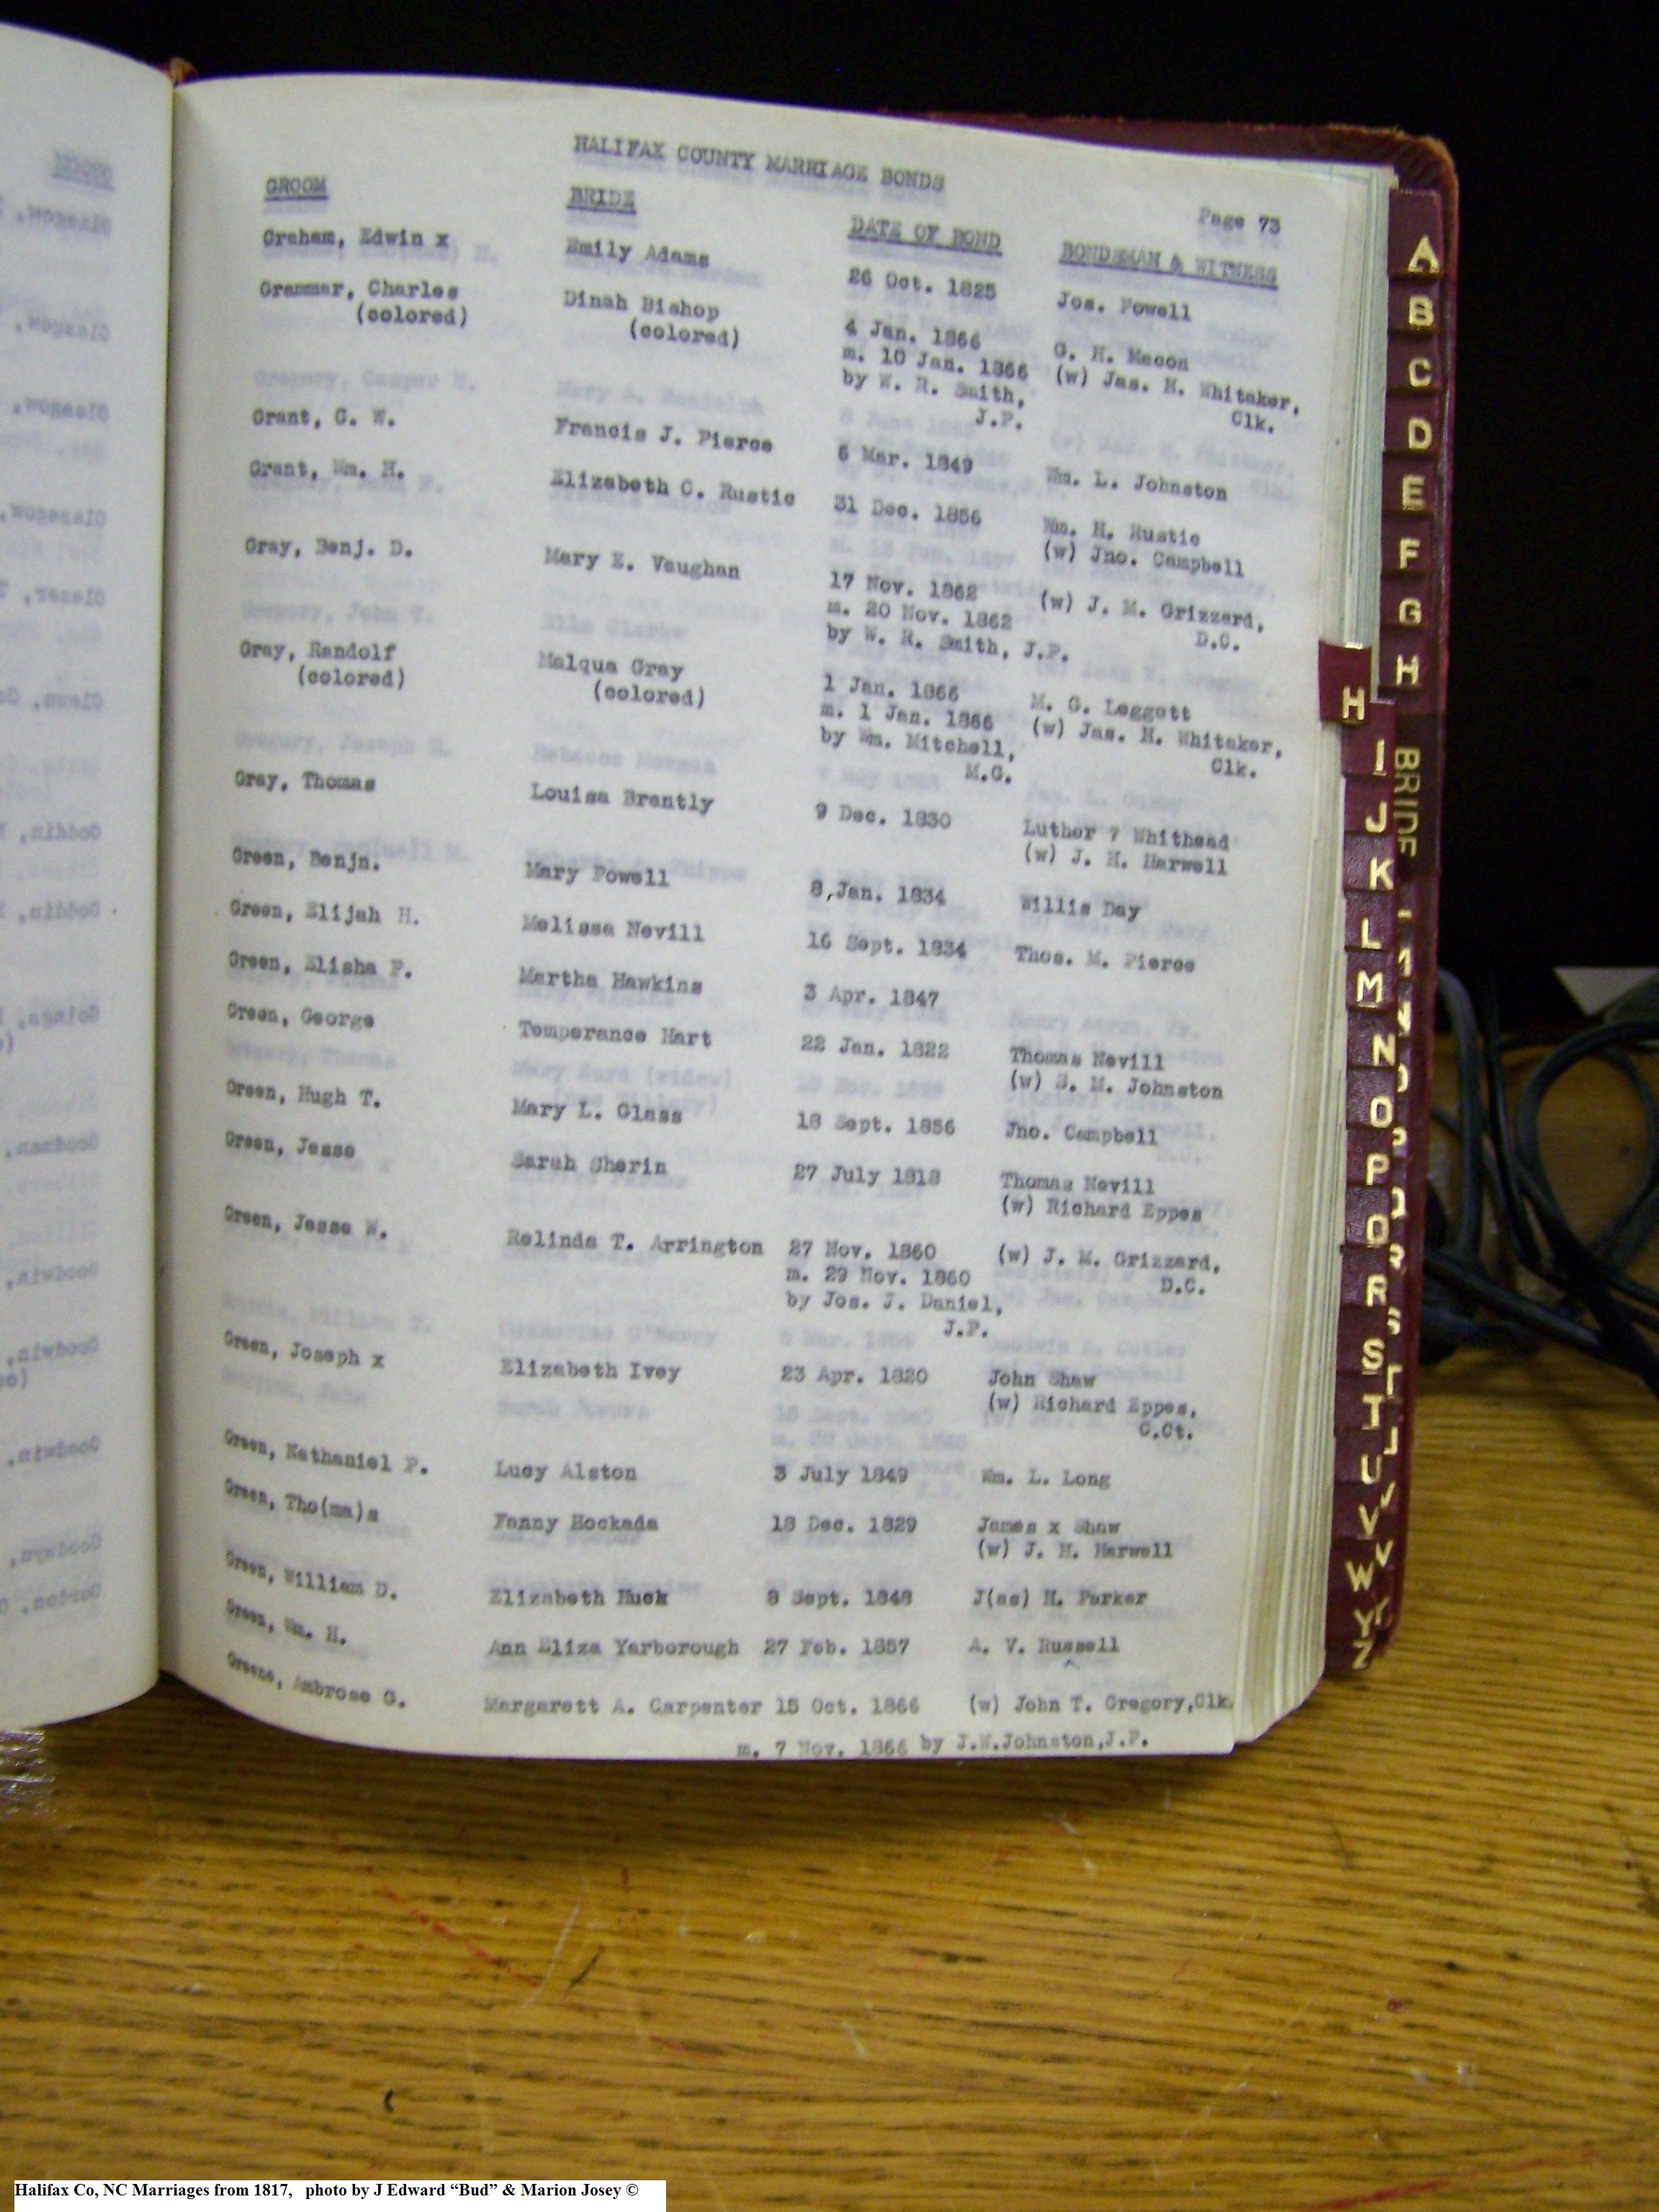 HALIFAX COUNTY MARRIAGE BONDS
Page 73
GROOM BRIDE DATE OF BOND BONDSMAN & WITNESS
Graham, Edwin x Emily Adams 26 Oct. 1825 Jos. Powell
Grammar, Charles Dinah Bishop 4 Jan. 1866 G. H. Macon
(colored) (colored) m. 10 Jan. 1866 (w) Jas. H. Whitaker,
by W. R. Smith, Clk.
J.P.
Grant, G. W. Francis J. Pierce 6 Mar. 1849 Wm. L. Johnston
Grant, Wm. H. Elizabeth C. Rustic 31 Dec. 1856 Wm. H. Rustic
(w) Jno. Campbell
Gray, Benj. D. Mary E. Vaughan 17 Nov. 1862 (w) J. M. Grizzard,
m. 20 Nov. 1862 D.C.
by W. R. Smith, J.P.
Gray, Randolf Malqua Gray 1 Jan. 1866 M. G. Leggett
(colored) (colored) m. 1 Jan. 1866 (w) Jas. H. Whitaker,
by Wm. Mitchell, Clk.
M.G.
Gray, Thomas Louisa Brantly 9 Dec. 1830 Luther ? Whithead
(w) J. H. Harwell
Green, Benjn. Mary Powell 8,Jan. 1834 Willis Day
Green, Elijah H. Melissa Nevill 16 Sept. 1834 Thos. M. Pierce
Green, Elisha P. Martha Hawkins 3 Apr. 1847
Green, George Temperance Hart 22 Jan. 1822 Thomas Nevill
(w) S. M. Johnston
Green, Hugh T. Mary L. Glass 18 Sept. 1856 Jno. Campbell
Green, Jesse Sarah Sherin 27 July 1818 Thomas Nevill
(w) Richard Eppes
Green, Jesse W. Relinda T. Arrington 27 Nov. 1860 (w) J. M. Grizzard,
m. 29 Nov. 1860 D.C.
by Jos. J. Daniel,
J.P.
Green, Joseph x Elizabeth Ivey 23 Apr. 1820 John Shaw
(w) Richard Eppes,
C.Ct.
Green, Nathaniel P. Lucy Alston 3 July 1849 Wm. L. Long
Green, Tho(ma)s Fanny Hockada 18 Dec. 1829 James x Shaw
(w) J. H. Harwell
Green, William D. Elizabeth Huck 8 Sept. 1848 J(as) H. Parker
Green, Wm. H. Ann Eliza Yarborough 27 Feb. 1857 A. V. Russell
Greene, Ambrose G. Margarett A. Carpenter 15 Oct. 1866 (w) John T. Gregory,Clk.
m. 7 Nov. 1866 by J.W.Johnston,J.P.
A
B
C
D
E
F
G
H
BRIDE
H
I
J
K
L
M
N
O
P
Q
R
S
T
U
V
W
Y
Z
Halifax Co, NC Marriages from 1817, photo by J Edward “Bud” & Marion Josey ©